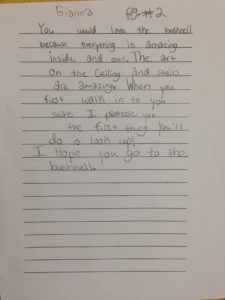 Gianna Pg. #2
You would love the bushnell
because everything is amazing
inside and out. The art
on the ceiling and stairs
are amazing. When you
first walk in to you
seats I promise you
the first thing you'll
do is look up!
I hope you go to the
bushnell.